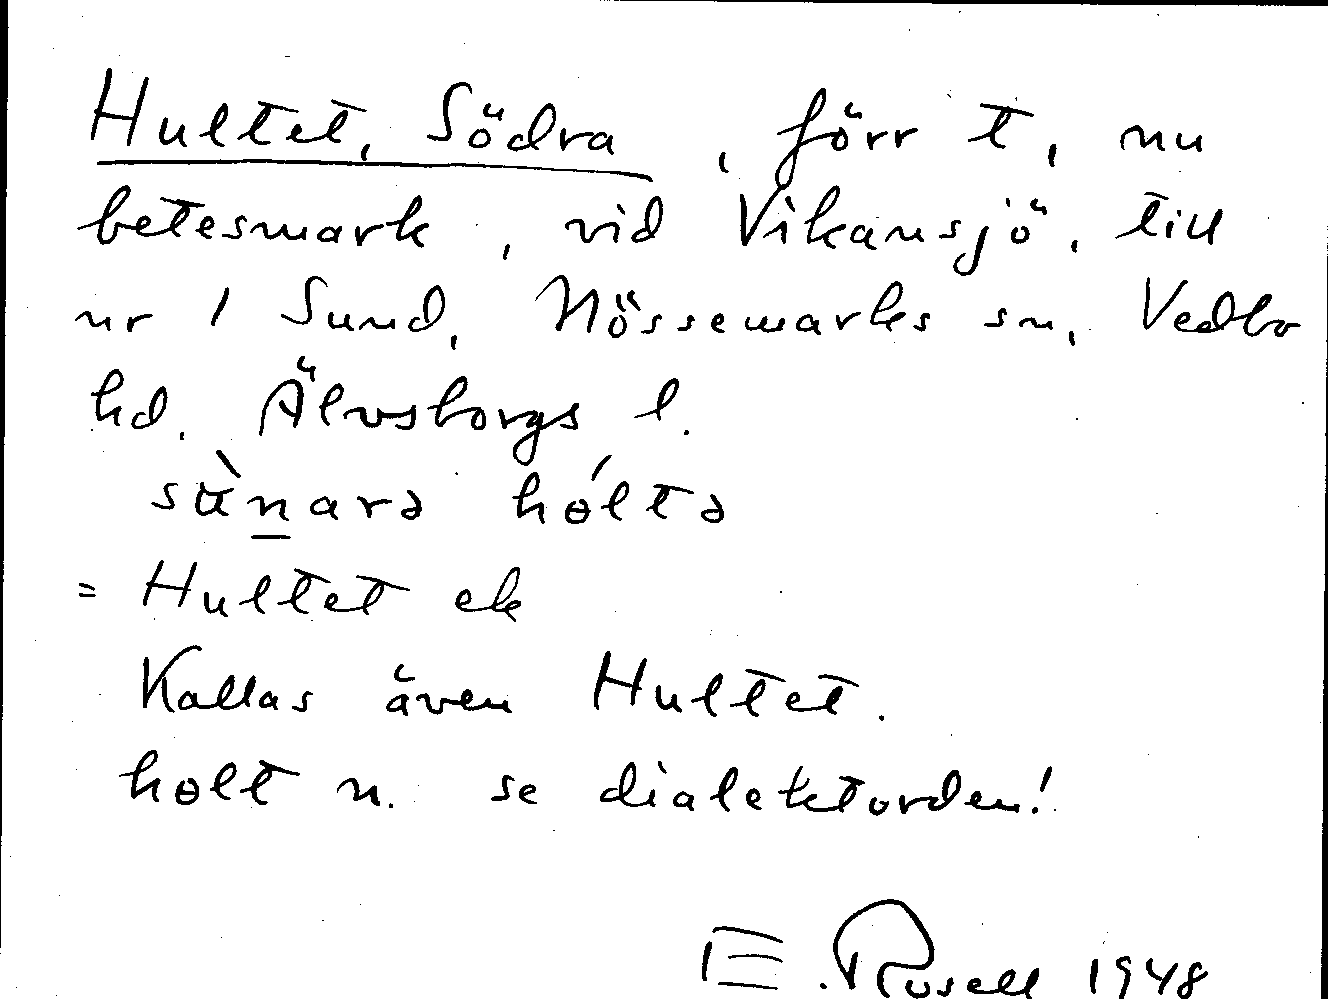 Hultet, Södra, förr t, nu
betesmark, vid Vikansjö, till
nr 1 Sund, Nössemarks sn, Vedbo
hd. Älvsborgs l.
sὰnarə hɵ́ltə
= Hultet ek
Kallas även Hultet.
hɵlt n. se dialektorden!
E. Rosell 1948